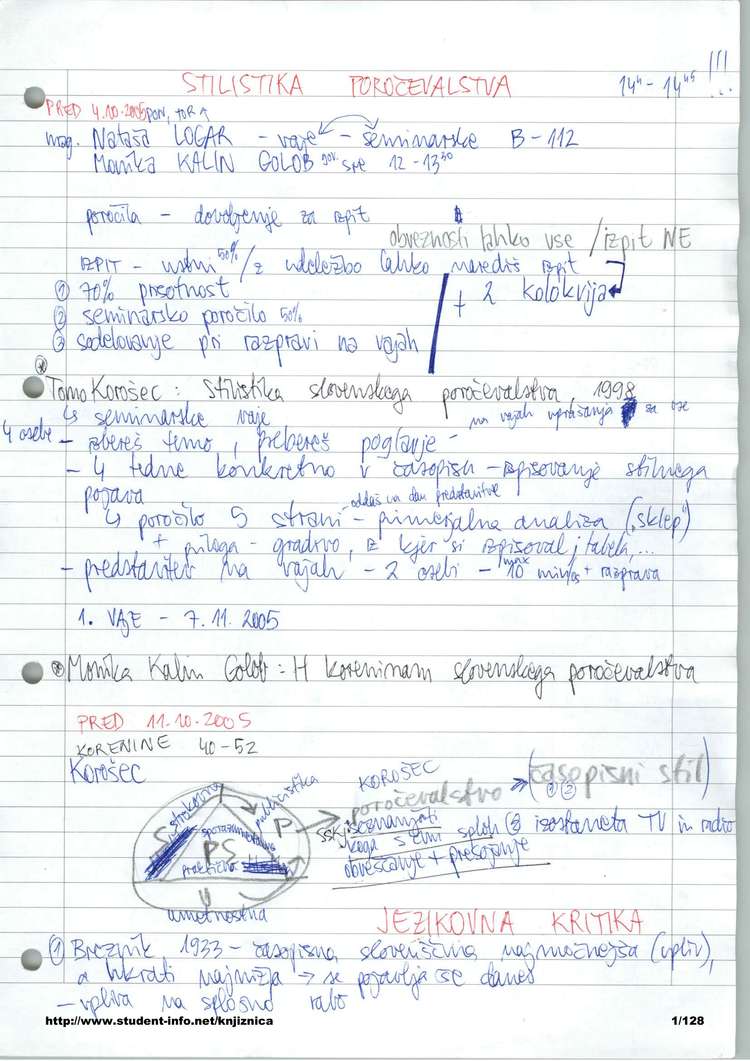 STILISTIKA POROČEVALSTVA 14ʰ - 14⁴⁵ !!!
PRED 4.10.2005 PON, TOR A
mag. Nataša LOGAR - vaje - seminarske B-112
Monika KALIN GOLOB gov. sre 12 - 13³⁰
poročila - dovoljenje za izpit
obveznosti lahko vse / izpit NE
IZPIT - ustni 50% / z udeležbo lahko narediš izpit
① 70% prisotnost + 2 kolokvija
② seminarsko poročilo 50%
③ sodelovanje pri razpravi na vajah
Tomo Korošec: Stilistika slovenskega poročevalstva, 1998
↳ seminarske vaje na vajah vprašanja za vse
4 osebe - izbereš temo, prebereš poglavje -
- 4 tedne konkretno v časopisu - izpisovanje stilnega
pojava oddaš na dan predstavitve
↳ poročilo 5 strani - primerjalna analiza ("sklep")
+ priloga - gradivo, iz kjer si izpisoval, tabela, ...
- predstavitev na vajah - 2 osebi - max 10 min + razprava
1. VAJE - 7.11.2005
Monika Kalin Golob: H koreninam slovenskega poročevalstva
PRED 11.10.2005
KORENINE 40-52
Korošec
strokovna publicistika
S P
sporazumevalna
PS
praktična
umetnostna
KOROŠEC
poročevalstvo → (časopisni stil)
① ②
SSKJ seznanjati
koga s čim sploh (② izostaneta TV in radio
obveščanje + presojanje
JEZIKOVNA KRITIKA
① Breznik 1933 - časopisna slovenščina najmočnejša (vpliv),
a hkrati najnižja → se pojavlja še danes
- vpliva na splošno rabo
http://www.student-info.net/knjiznica 1/128